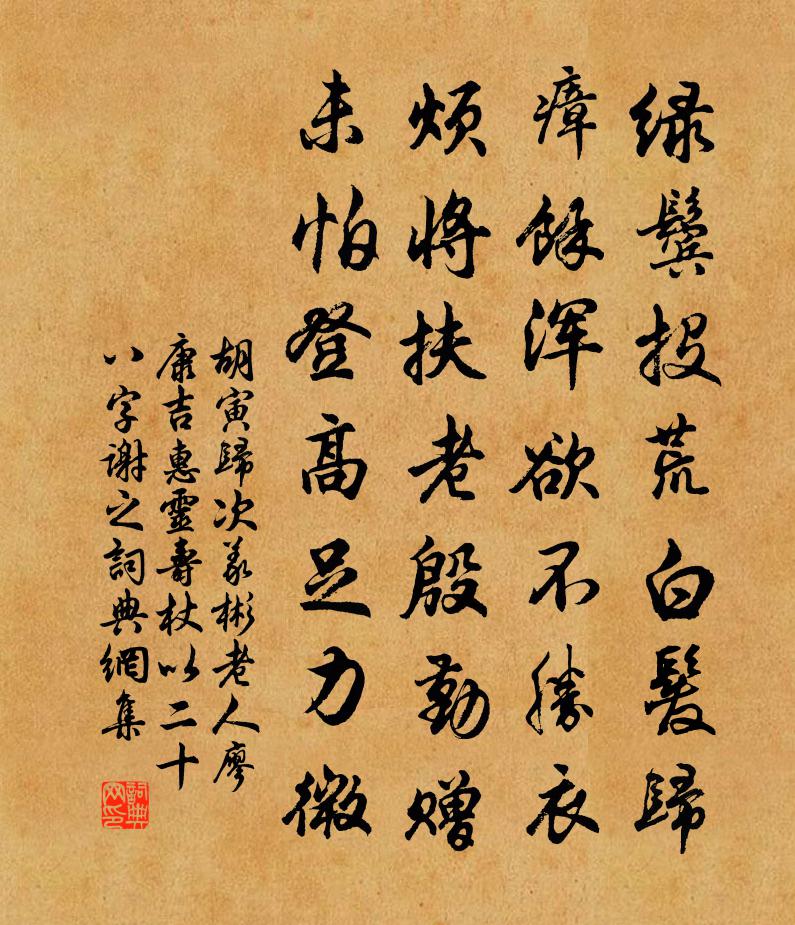 綠鬢投荒白髮歸
瘴餘渾欲不勝衣
煩將扶老殷勤贈
未怕登高足力微
胡寅歸次義彬老人廖
康吉惠靈壽杖以二十
八字謝之詞典網集
詞典网印